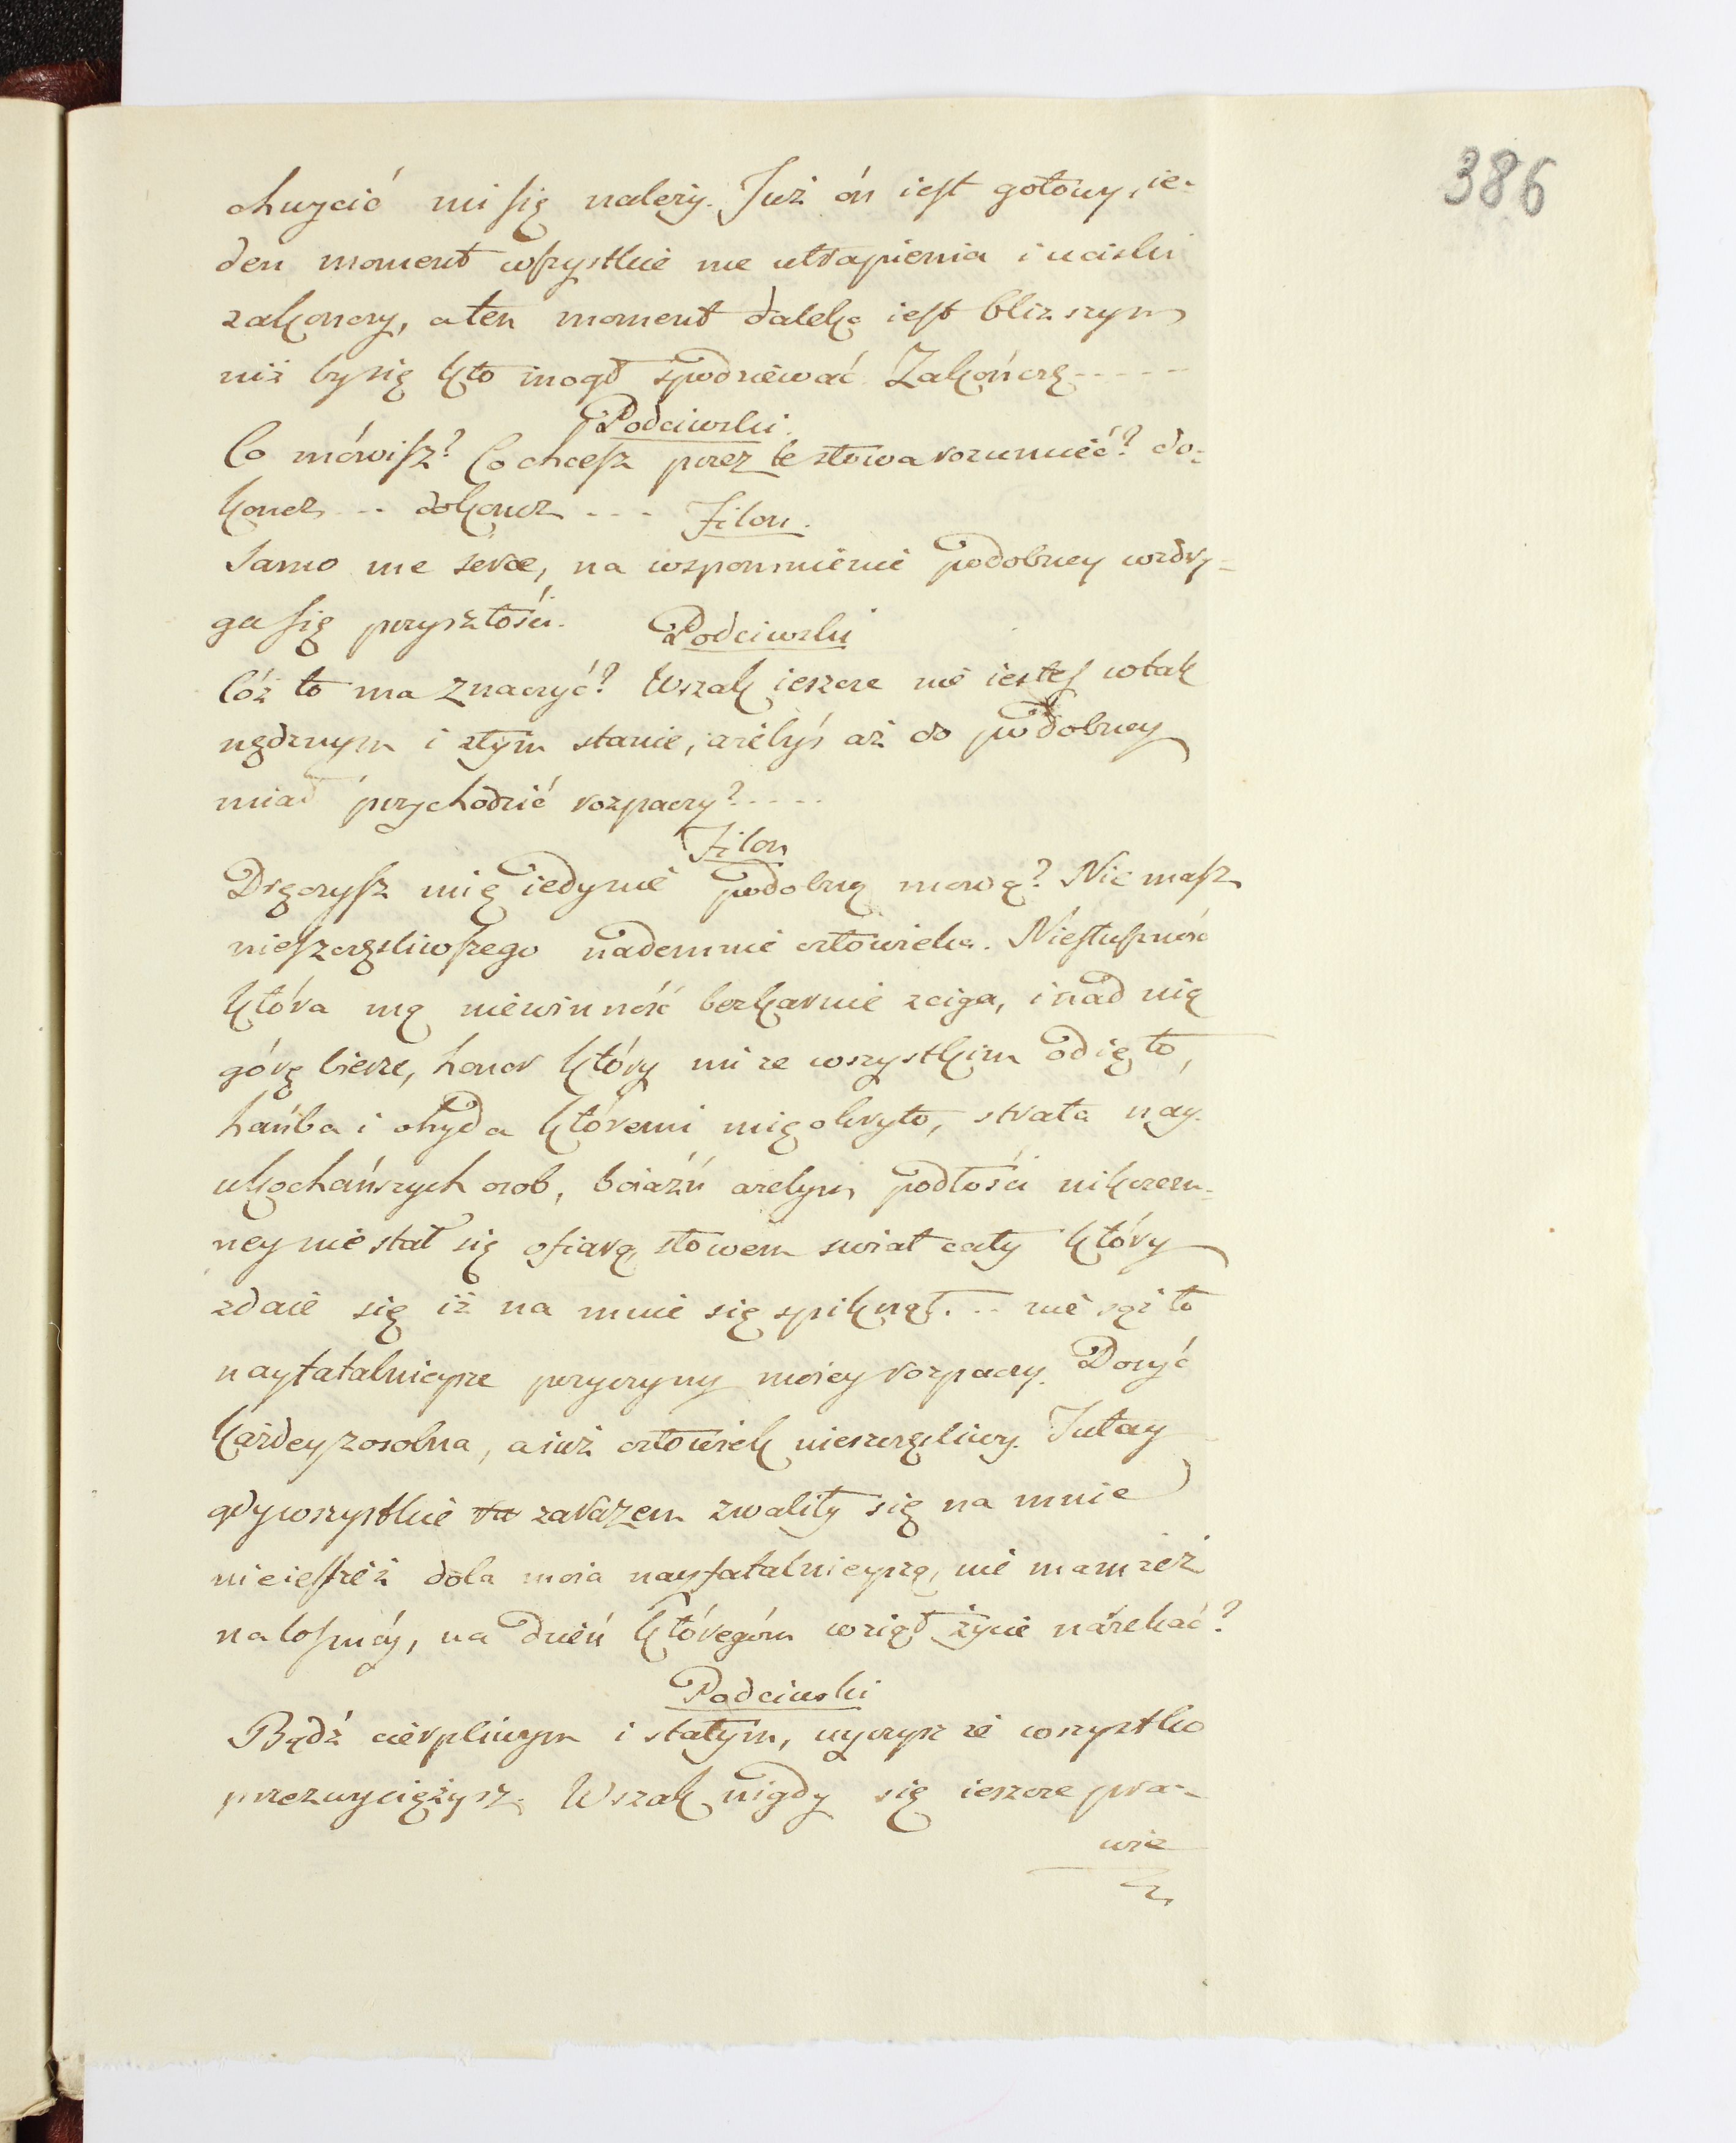 386
chwycić mi się należy. Już ón iest gotowy, ie-
den moment wszystkie me utrapienia i uciski
zakonczy, a ten moment daleko iest bliższym
niż by się kto mogł spodziewać. Zakończę - - - - -
Podciwski.
Co mówisz? Co chcesz przez te słowa rozumieć? do-
koncz - - dokoncz - - -
Filon.
Samo me serce, na wspomnienie podobney wzdry-
ga się przyszłości.
Podciwski
Cóż to ma znaczyć? Wszak ieszcze nie iesteś w tak
nędznym i złym stanie, ażebyś aż do podobney
miał przychodzić rozpaczy? - - - -
Filon
Dręczysz mię iedynie podobną mową? Nie masz
nieszczęśliwszego nademnie człowieka. Niesłuszność
która mą niewinność bezkarnie ściga, i nad nią
górę bierze, honor który mi ze wszystkim odięto,
hańba i ohyda któremi mię okryto, strata nay-
ukochańszych osob, boiaźń ażebym podłości nikczem-
ney nie stał się ofiarą, słowem swiat cały który
zdaie się iż na mnie się spiknął. - - nie sąż to
nayfatalnieysze przyczyny moiey rozpaczy. Dosyć
każdey zosobna, a iuż człowiek nieszczęśliwy. Tutay
gdy wszystkie zarazem zwaliły się na mnie
nie iestżeż dola moia nayfatalnieyszą, nie mamżeż
na los móy, na dzień któregóm wziął życie nárekać?
Podciwski
Bądź cierpliwym i stałym, uyrzysz że wszystko
przezwyciężysz. Wszak nigdy się ieszcze pra-
wie